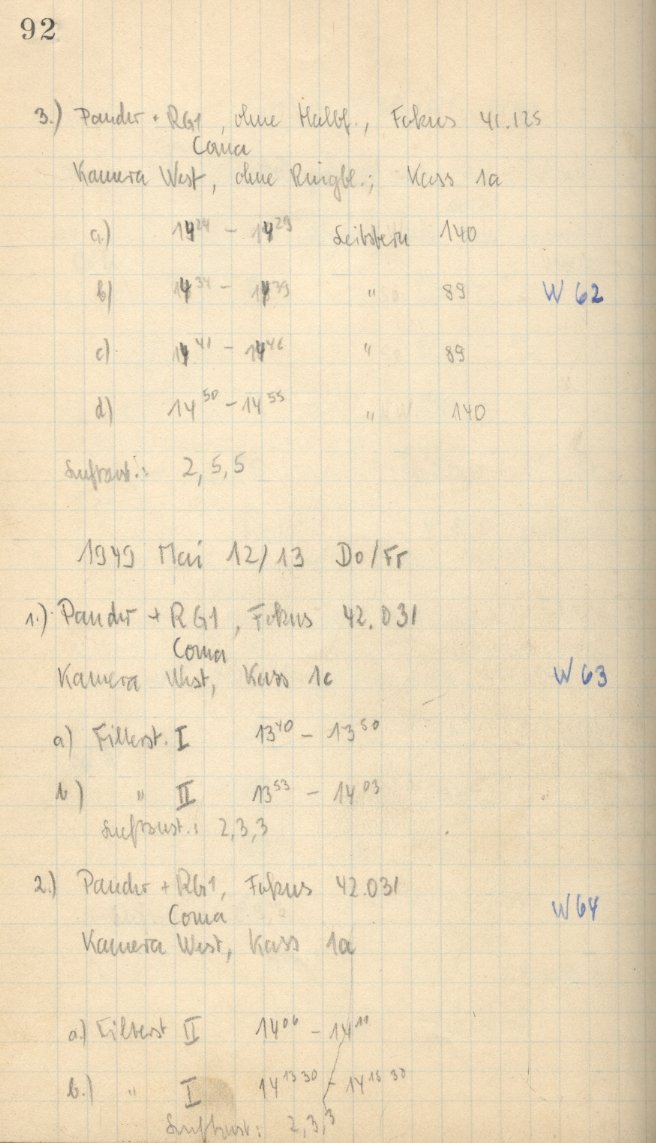 92
3.) Pander + RG1, ohne Halbf., Fokus 41.125
Coma
Kamera West, ohne Ringbl.; Kass 1a
a) 14 24 – 14 29 Leitstern 140
b) 14 34 – 14 39 " 89 W 62
c) 14 41 – 14 46 " 89
d) 14 50 – 14 55 " 140
Luftzust.: 2, 5, 5
1949 Mai 12/13 Do/Fr
1.) Pander + RG1, Fokus 42.031
Coma
Kamera West, Kass 1c W 63
a) Filterst. I 13 40 – 13 50
b) " II 13 53 – 14 03
Luftzust.: 2,3,3
2.) Pander + RG1, Fokus 42.031
Coma W 64
Kamera West, Kass 1a
a.) Filterst II 14 06 – 14
b.) " I 14 13 30 – 14 30
Luftzust: 2,3,3